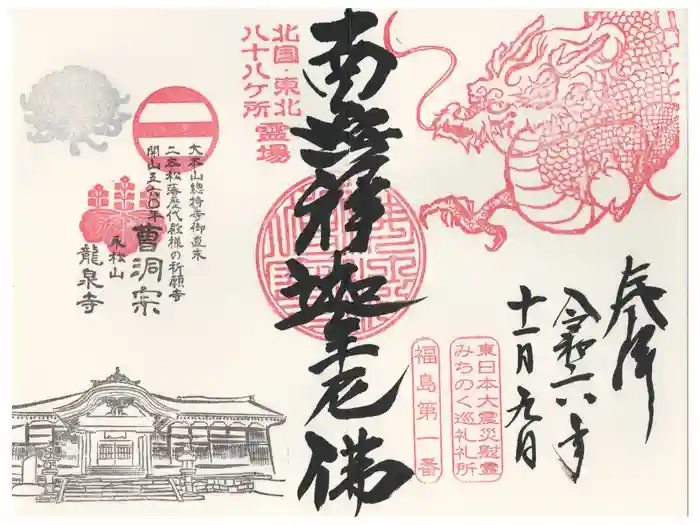 奉拝
令和六年
十一月元日
南無釋迦牟尼佛
北国・東北
八十八ヶ所
霊場
東日本大震災慰霊
みちのく巡礼札所
福島第一番
大本山總持寺御直末
二本松藩歴代殿様の祈願寺
開山五六〇年
曹洞宗
永松山
龍泉寺